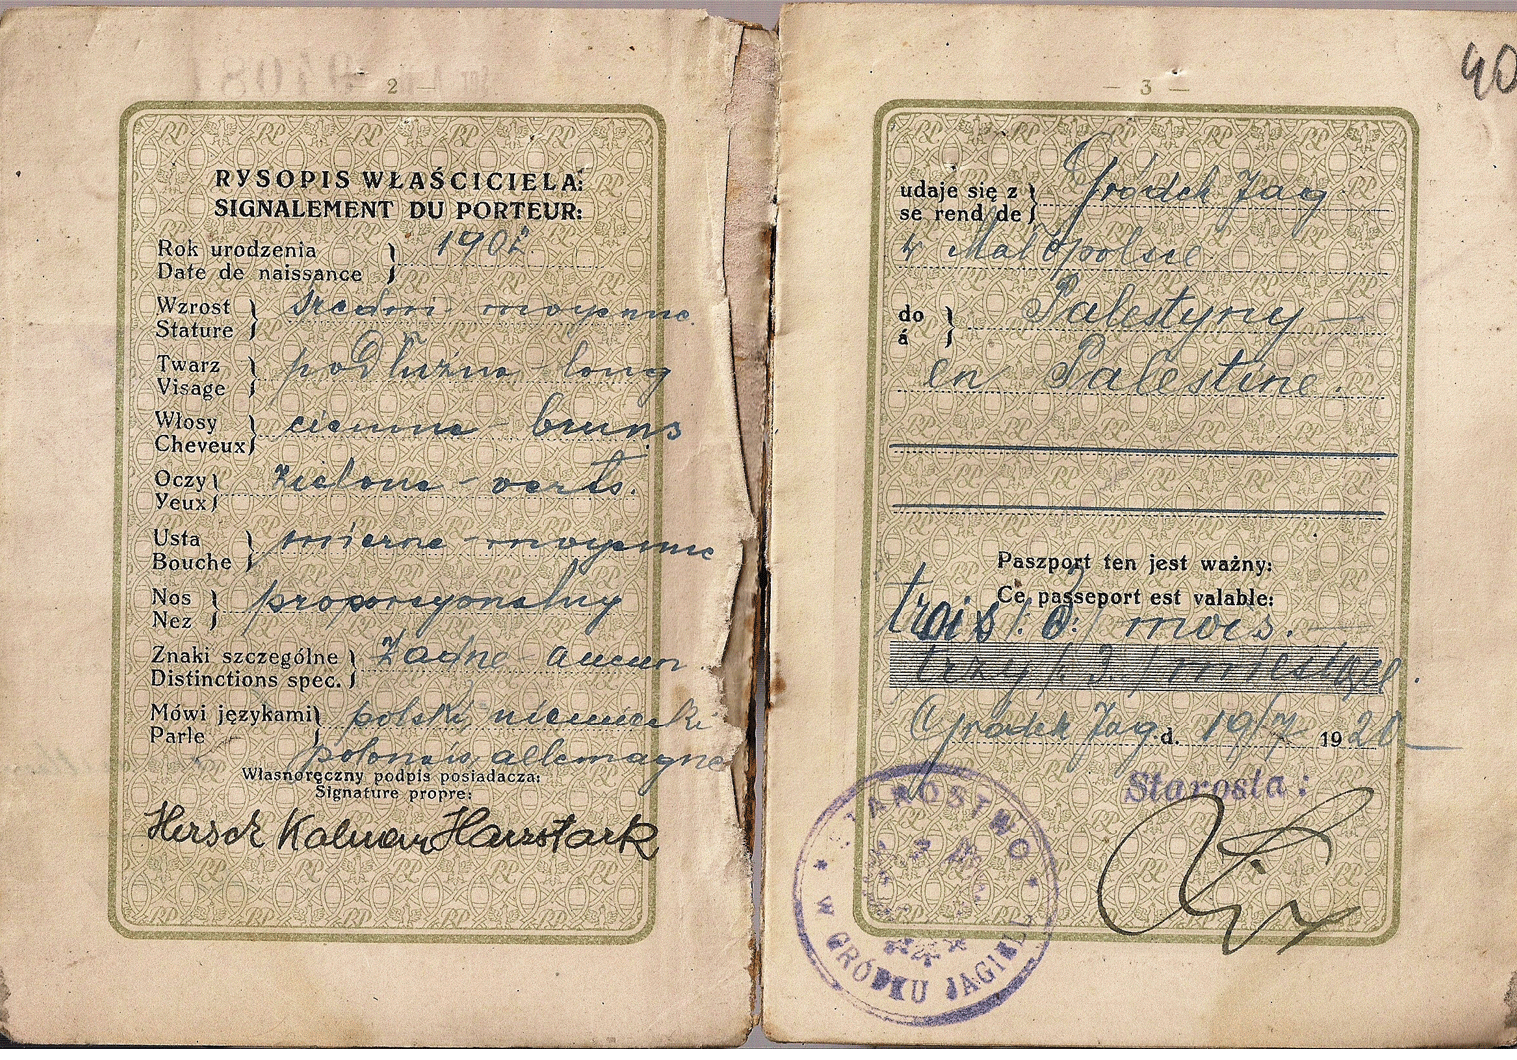 — 2 —
RYSOPIS WŁAŚCICIELA:
SIGNALEMENT DU PORTEUR:
Rok urodzenia
Date de naissance
1902
Wzrost
Stature
średni moyenne
Twarz
Visage
podłużna - long
Włosy
Cheveux
ciemne - bruns
Oczy
Yeux
zielone - verts.
Usta
Bouche
mierne - moyenne
Nos
Nez
proporcyonalny
Znaki szczególne
Distinctions spec.
żadne - aucun
Mówi językami
Parle
polski, niemiecki
polonais, allemagne
Własnoręczny podpis posiadacza:
Signature propre:
Hersch Kalman Harzstark
— 3 —
40
udaje się z
se rend de
Gródek Jag
w Małopolsce
do
á
Palestyny —
en Palestine.
Paszport ten jest ważny:
Ce passeport est valable:
trois /:3:/ mois. —
trzy /:3:/ miesiące.
Gródek Jag. d. 19/7 19
Starosta:
STAROSTWO
W GRÓDKU JAGIELL